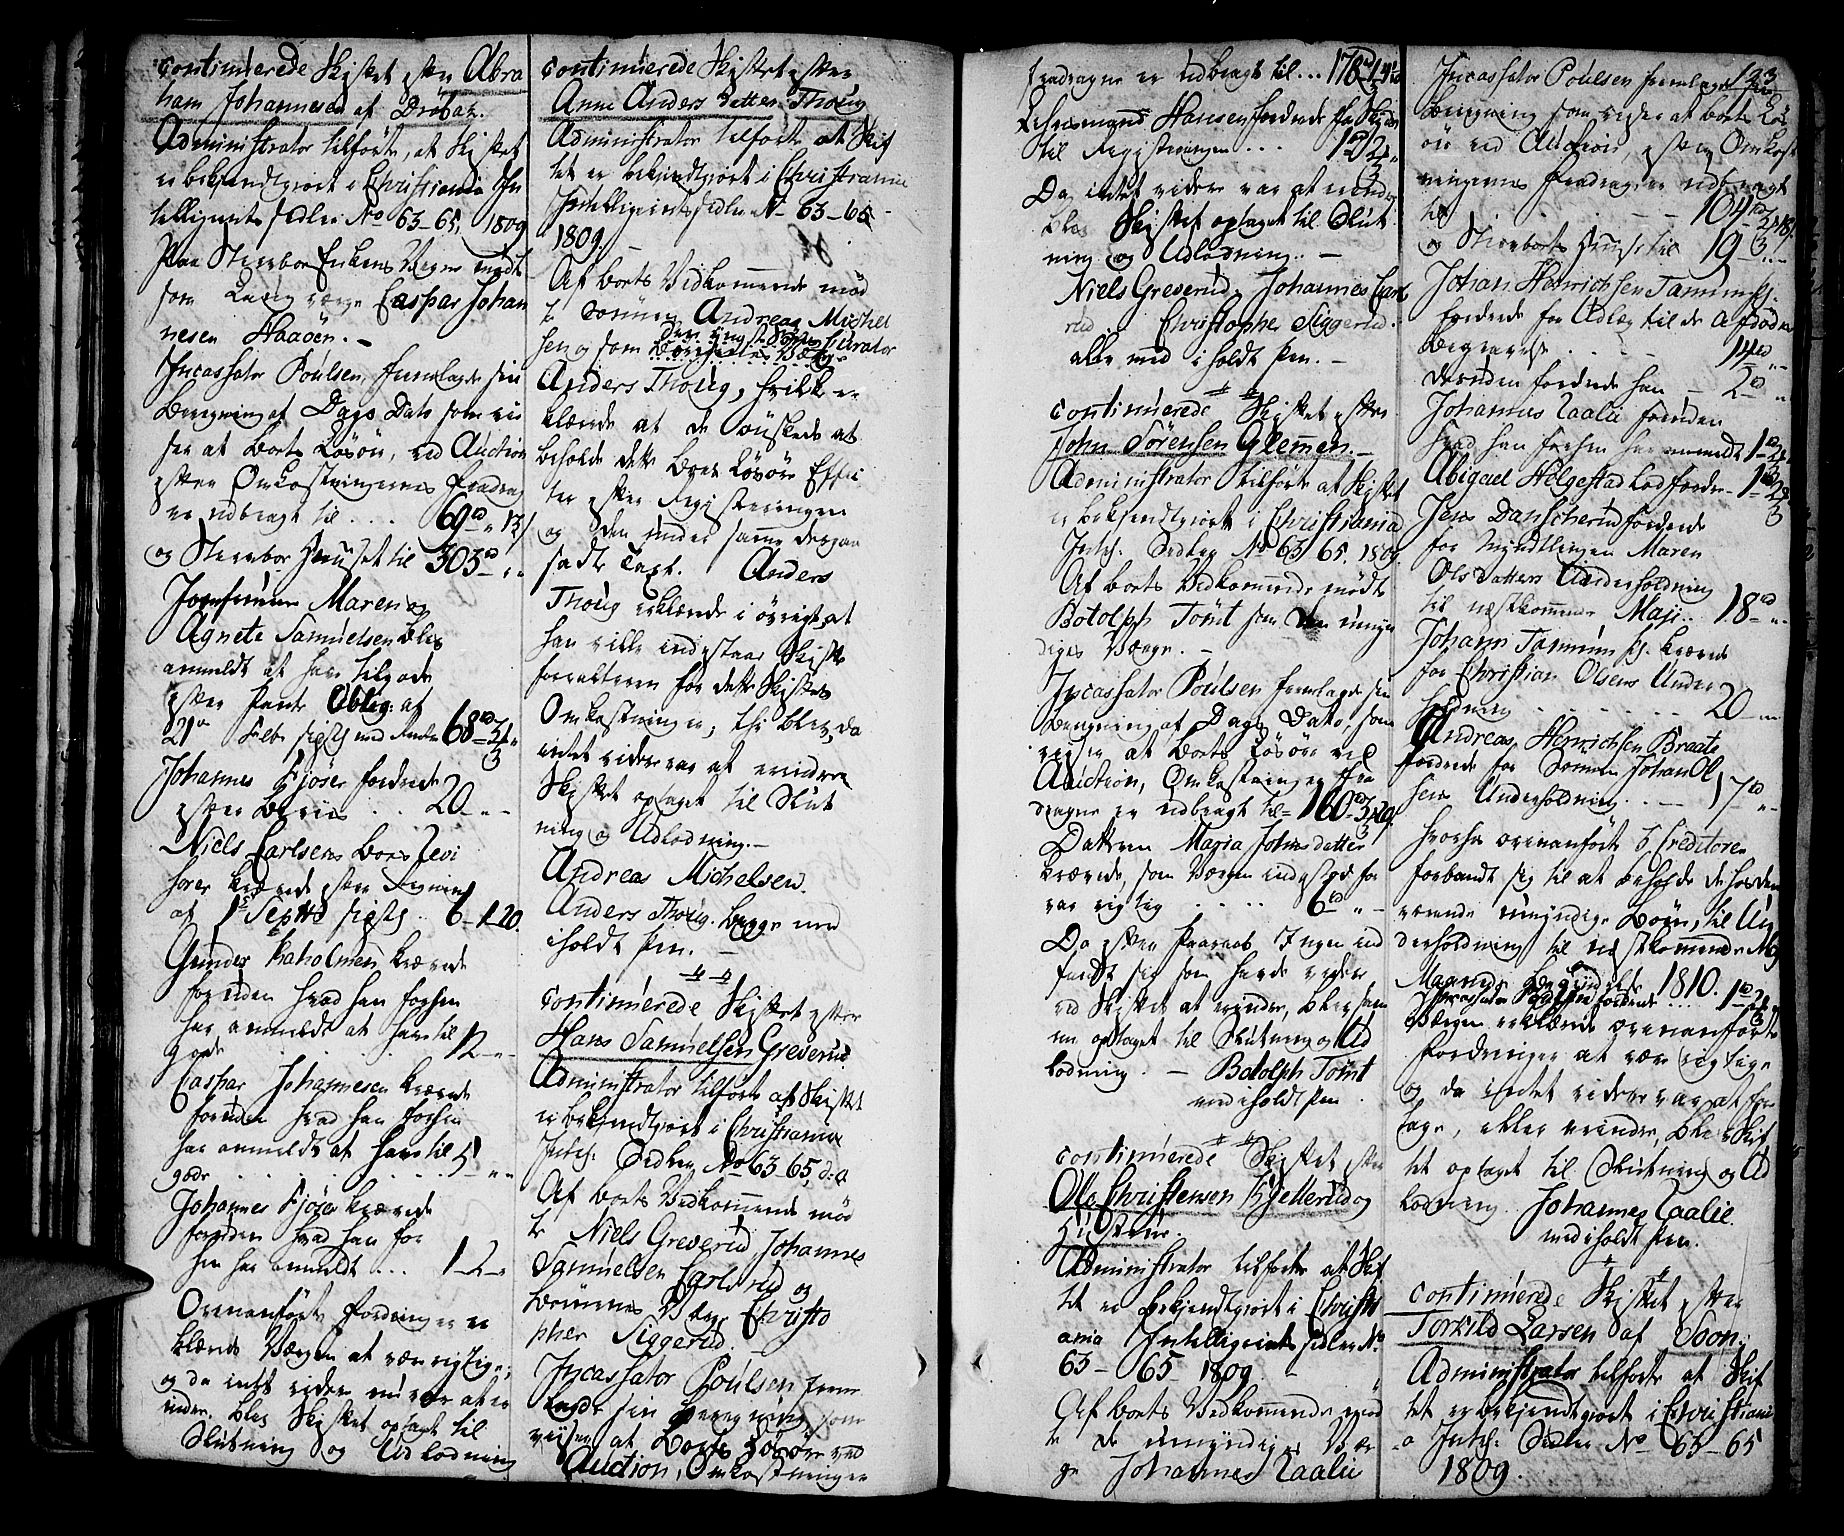 continuerede Skiftet efter Abra
ham Johannesen af Drøbak.
Administrator tilførte, at Skiftet
er bekjendtgiort i Christiania In
telligents sedler No 63-65, 1809
Paa Sterbor Enkens Vegne mødte
som Laugværge Caspar Johan
nesen Haaøen. -
Incassator Poulsen fremlagde sin
Beregning af Dags Dato som vi
ser at Boets Løsøre, ved Auction
efter Omkostningernes fradrag
er udbragt til .... 69 rd " 13 s
og Sterbor Huuset til 303 rd " "
Jomfruerne Maren og
Agnete Samuelsen blev
anmeldt at have tilgode
efter Pante Oblig: af
21de Febr sidstl med Renter 68 rd 3/4 "
Johannes Kjøser fordrede
efter Beviis . . 20 - " -
Niels Carlsens Boes Revi
sorer krævede efter Regning
af 1ste Septb sidstl . . 6 - 1 20.
Gunder Kaholmen krævede
foruden hvad han forhen
har anmeldt at have til
gode . . . . 12 - " -
Caspar Johannesen krævede
foruden hvad han forhen
har anmeldt at have til
gode . . . . 5 - " "
Johannes Kjøser krævede
foruden hvad han for
hen har anmeldt ... 1 - 2 - "
Ovenanførte fordringer er
klærede Værgen at være rigtige;
og da intet videre nu var at er
indre, blev Skiftet optaget til
Slutning og Udlodning
continuerede Skiftet efter
Anne Anders datter Thoug
Administrator tilførte at Skif
tet er bekjendtgiort i Christiania
Intelligents sedler No 63-65
1809. -
Af boets Vedkommende mød
te Sønnen Andreas Michel
sen og som den yngste Søns Curator
Anders Thoug, hvilke er
klærede at de ønskede at
beholde dette Boes Løsøre Effec
ter efter Registeringen
og den under samme derpaa
sadte Taxt. Anders
Thoug erklærede i øvrigt at
han ville indestaae Skifte
forvalteren for dette Skiftes
Omkostninger, thi blev, da
intet videre var at erindre
Skiftet optaget til Slut
ning og Udlodning. -
Andreas Michelsen.
Anders Thoug. begge med
iholdt Pen. -
continuerede Skiftet efter
Hans Samuelsen Greverud
Administrator tilførte at Skiftet
er bekjendtgiort i Christiania
Intell: Sedler No 63-65, d: A
Af boets Vedkommende mød
te Niels Greverud, Johannes
Samuelsen Carlsrud og
Børnenes Værge Christo
pher Siggerud.
Incassator Poulsen frem
lagde sin Beregning som
viiser at Boets Løsøre ved
Auction, Omkostninger
fradragne er udbragt til ... 176 rd 1 14 s
Lehnsmand Hansen fordrede for Skyds
til Registeringen . . . 1 rd 2/3 "
Da intet videre var at erindre
blev Skiftet optaget til Slut
ning og Udlodning. -
Niels Greverud, Johannes Carls
rud, Christopher Siggerud.
alle med iholdt Pen. -
continuerede Skiftet efter
John Sørensen Glemmen. -
Administrator tilførte at Skiftet
er bekjendtgiort i Christiania
Intell: Sedler No 63 65, 1809.
Af boets Vedkommende mødte
Botolph Tømt som den umyn
diges Værge. -
Incassator Poulsen fremlagde sin
Beregning af Dags Dato, som
viser at boets Løsøre ved
Auction, Omkostninger fra
dragne er udbragt til - 160 rd
Datteren Maria Johnsdatter
krævede, som Værgen indestod for
var rigtig . . . . . 6 rd " -
Da efter Paaraab Ingen ind
fandt sig som havde videre
ved Skiftet at erindre, blev sam
me optaget til Slutning og Ud
lodning. - Botolph Tømt
med iholdt Pen.
continuerede Skiftet efter
Ole Christensen Kjellerud og
Hustrue.
Administrator tilførte at Skif
tet er bekjendtgiort i Christi
ania Intelligents sedler No
63 - 65 1809. -
Af boets Vedkommende mød
te de umyndiges Vær
ge Johannes Raalie
123
Incassator Poulsen fremlagde sin
Beregning som viser at boets Løs
øre ved Auction, efter Omkost
ningernes fradrag er udbragt
til . . . - - 104 rd
og Sterboets Huuse til 19 - " -
Johan Henrichsen Tamm
fordrede for Udlæg til de afdødes
Begravelse . . . 14 rd " -
desuden fordrede han - 2 rd "
Johannes Raalie foruden
hvad han forhen har anmeldt 1 rd 2/3
Abigael Helgestad lod fordre - 1 rd 2/3
Jens Danscherud fordrede
for Myndtlingen Maren
Olsdatters Underholdning
til næstkommende Maji .. 18 rd " -
Johan Tamm krævede
for Christian Olsens Under
holdning . . . . . . . 20 - " -
Andreas Henrichsen Braate
fordrede for Sønnen Johan Ol
sens Underholdning . . - 17 rd " -
hvorhos ovenanførte 3 Creditorer
forbandt sig til at beholde de hos dem
værende umyndige Børn, til Un
derholdning til næstkommende Maj
Maaneds Begyndelse 1810.
Incassator Poulsen fordrede ... 1 rd 2/3 "
Værgen erklærede ovenanførte
fordringer at være rigtige
og da intet videre var at fore
tage, eller erindre, blev Skif
tet optaget til Slutning og Ud
lodning. Johannes Raalie.
med iholdt Pen.
continuerede Skiftet efter
Torkild Larsen af Soon.
Administrator tilførte at Skif
tet er bekjendtgiort i Christiani
a Intell: Sedler No 63-65
1809.